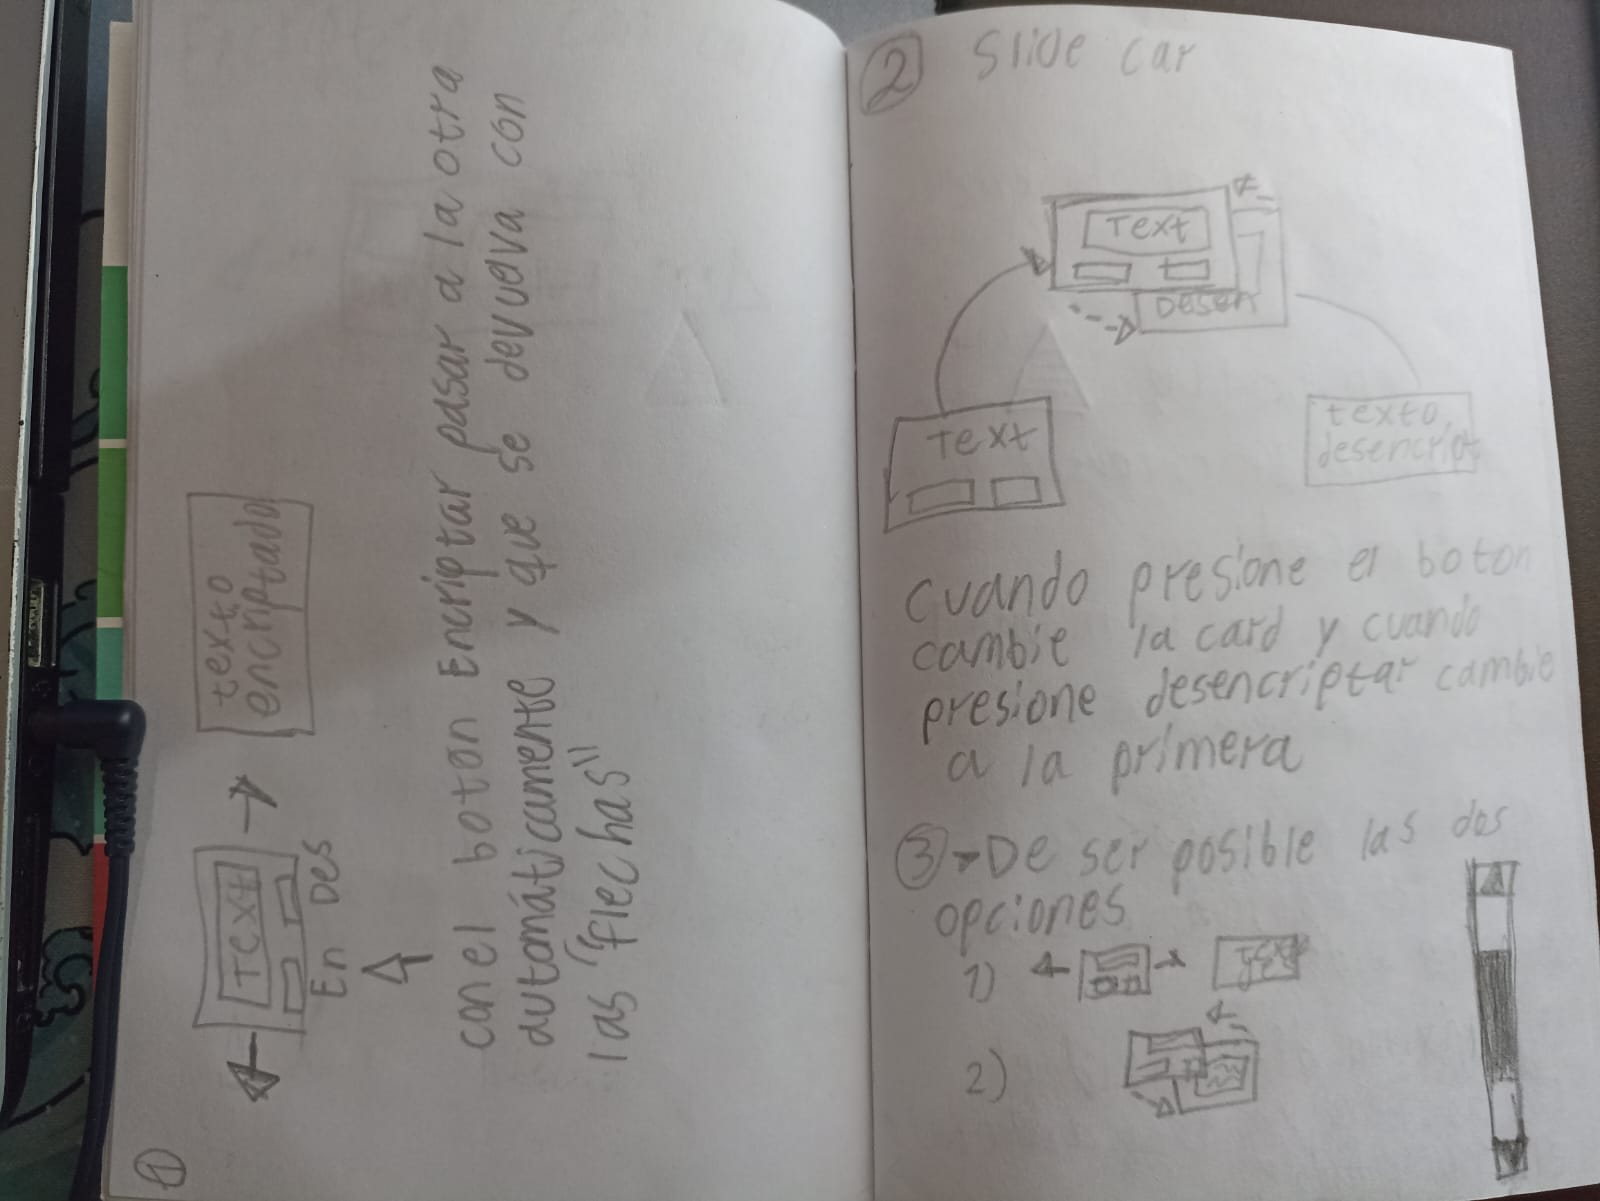 1
Text
En Des
texto
encriptado
con el boton Encriptar pasar a la otra
automáticamente y que se devuelva con
las "flechas"
2 Slide car
Text
Desen
Text
texto
desencript
cuando presione el boton
cambie la card y cuando
presione desencriptar cambie
a la primera
3 De ser posible las dos
opciones
1)
2)